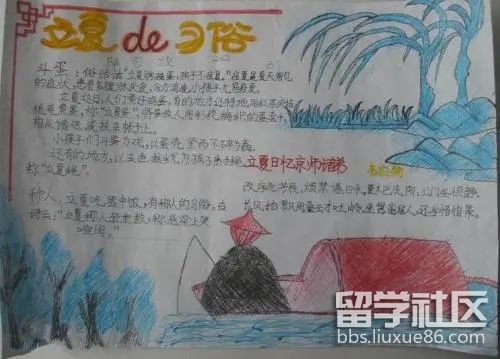 立夏de习俗
斗蛋：俗话说"立夏胸挂蛋，孩子不疰夏。"疰夏是夏天常见
的症状，患者多腹胀厌食，乏力消瘦，小孩子尤易疰夏。
立夏这日，人们煮好鸡蛋，有的地方还特地用红茶或
核桃壳煮蛋，称"立夏蛋"，将蛋放入用彩线编织的蛋套中，
挂在孩子上
小孩子们斗蛋为戏，以蛋壳坚而不碎为赢。
还有的地方，以五色丝线为孩子系手绳，
称"立夏绳"。
立夏日忆京师诸弟
韦应物
称人：立夏吃罢中饭，有称人的习俗。古
诗云："立夏秤人轻重数，秤悬梁上笑
喧闺。"
改序念芳辰，烦襟倦日永。夏木已成阴，公门昼恒静。
长风始飘阁，叠云才吐岭。坐想离居人，还当惜徂景。
留学社区
bbs.liuxue86.com